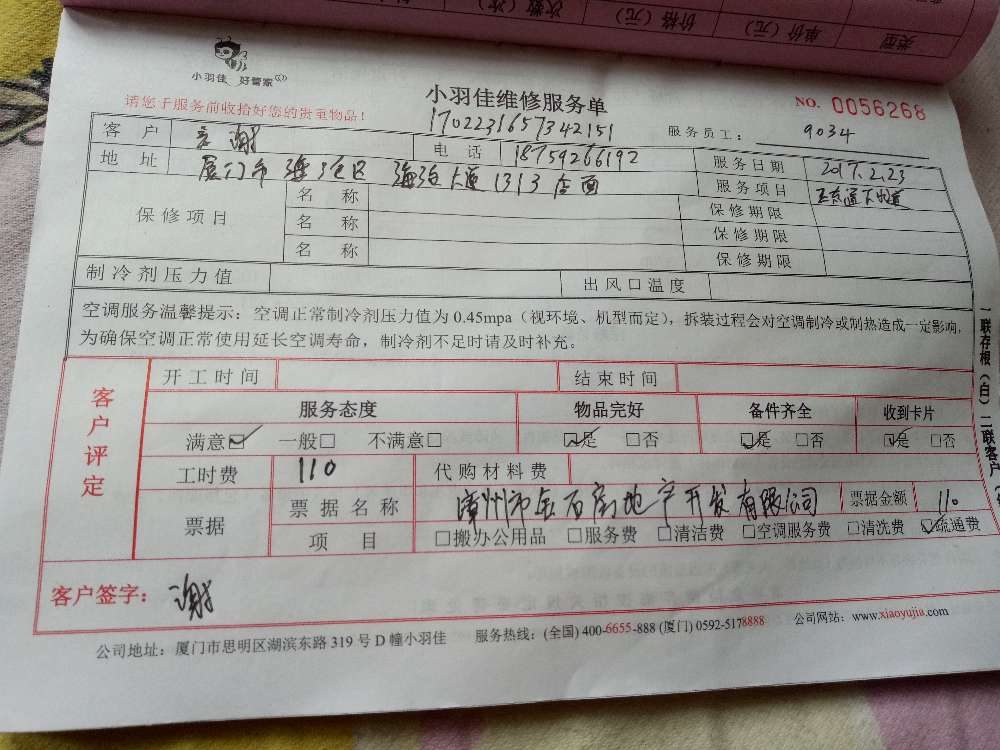 类型 单价（元） 价格（元） 次数（次）
小羽佳 好管家
小羽佳维修服务单
NO. 0056268
请您于服务前收拾好您的贵重物品！
1702231657342151
服务员工： 9034
客户 谢 电话 18759266192 服务日期 2017.2.23
地址 厦门市海沧区 海沧大道1313店面 服务项目 疏通下水道
保修项目 名称 保修期限
名称 保修期限
名称 保修期限
制冷剂压力值 出风口温度
空调服务温馨提示：空调正常制冷剂压力值为0.45mpa（视环境、机型而定），拆装过程会对空调制冷或制热造成一定影响，
为确保空调正常使用延长空调寿命，制冷剂不足时请及时补充。
客户评定
开工时间 结束时间
服务态度 物品完好 备件齐全 收到卡片
满意☑ 一般□ 不满意□ ☑是 □否 ☑是 □否 ☑是 □否
工时费 110 代购材料费
票据 票据名称 漳州市金石房地产开发有限公司 票据金额 110
项目 □搬办公用品 □服务费 □清洁费 □空调服务费 □清洗费 ☑疏通费
客户签字： 谢
公司地址：厦门市思明区湖滨东路319号D幢小羽佳 服务热线：(全国) 400-6655-888 (厦门) 0592-5178888 公司网站：www.xiaoyujia.com
一联存根（白）二联客户